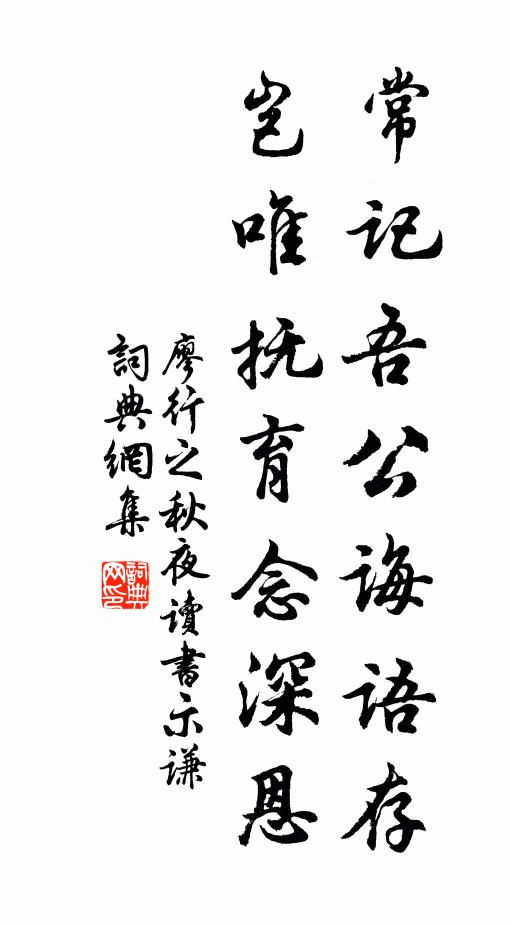 常记吾公诲语存
岂唯抚育念深恩
廖行之秋夜讀書示谦
詞典網集
詞典网印